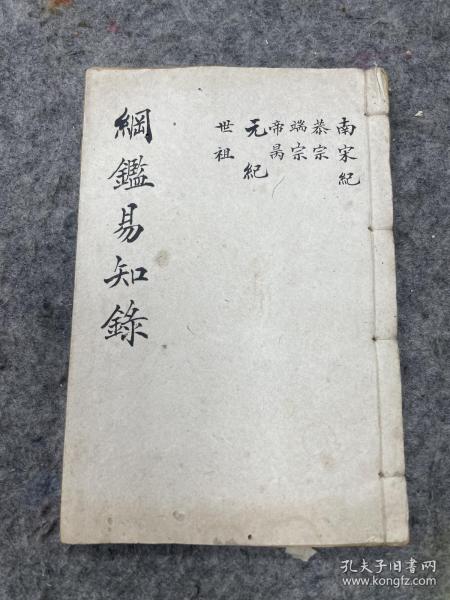 南宋紀
恭宗
端宗
帝昺
元紀
世祖
綱鑑易知錄
孔夫子旧書网
www.kongfz.com